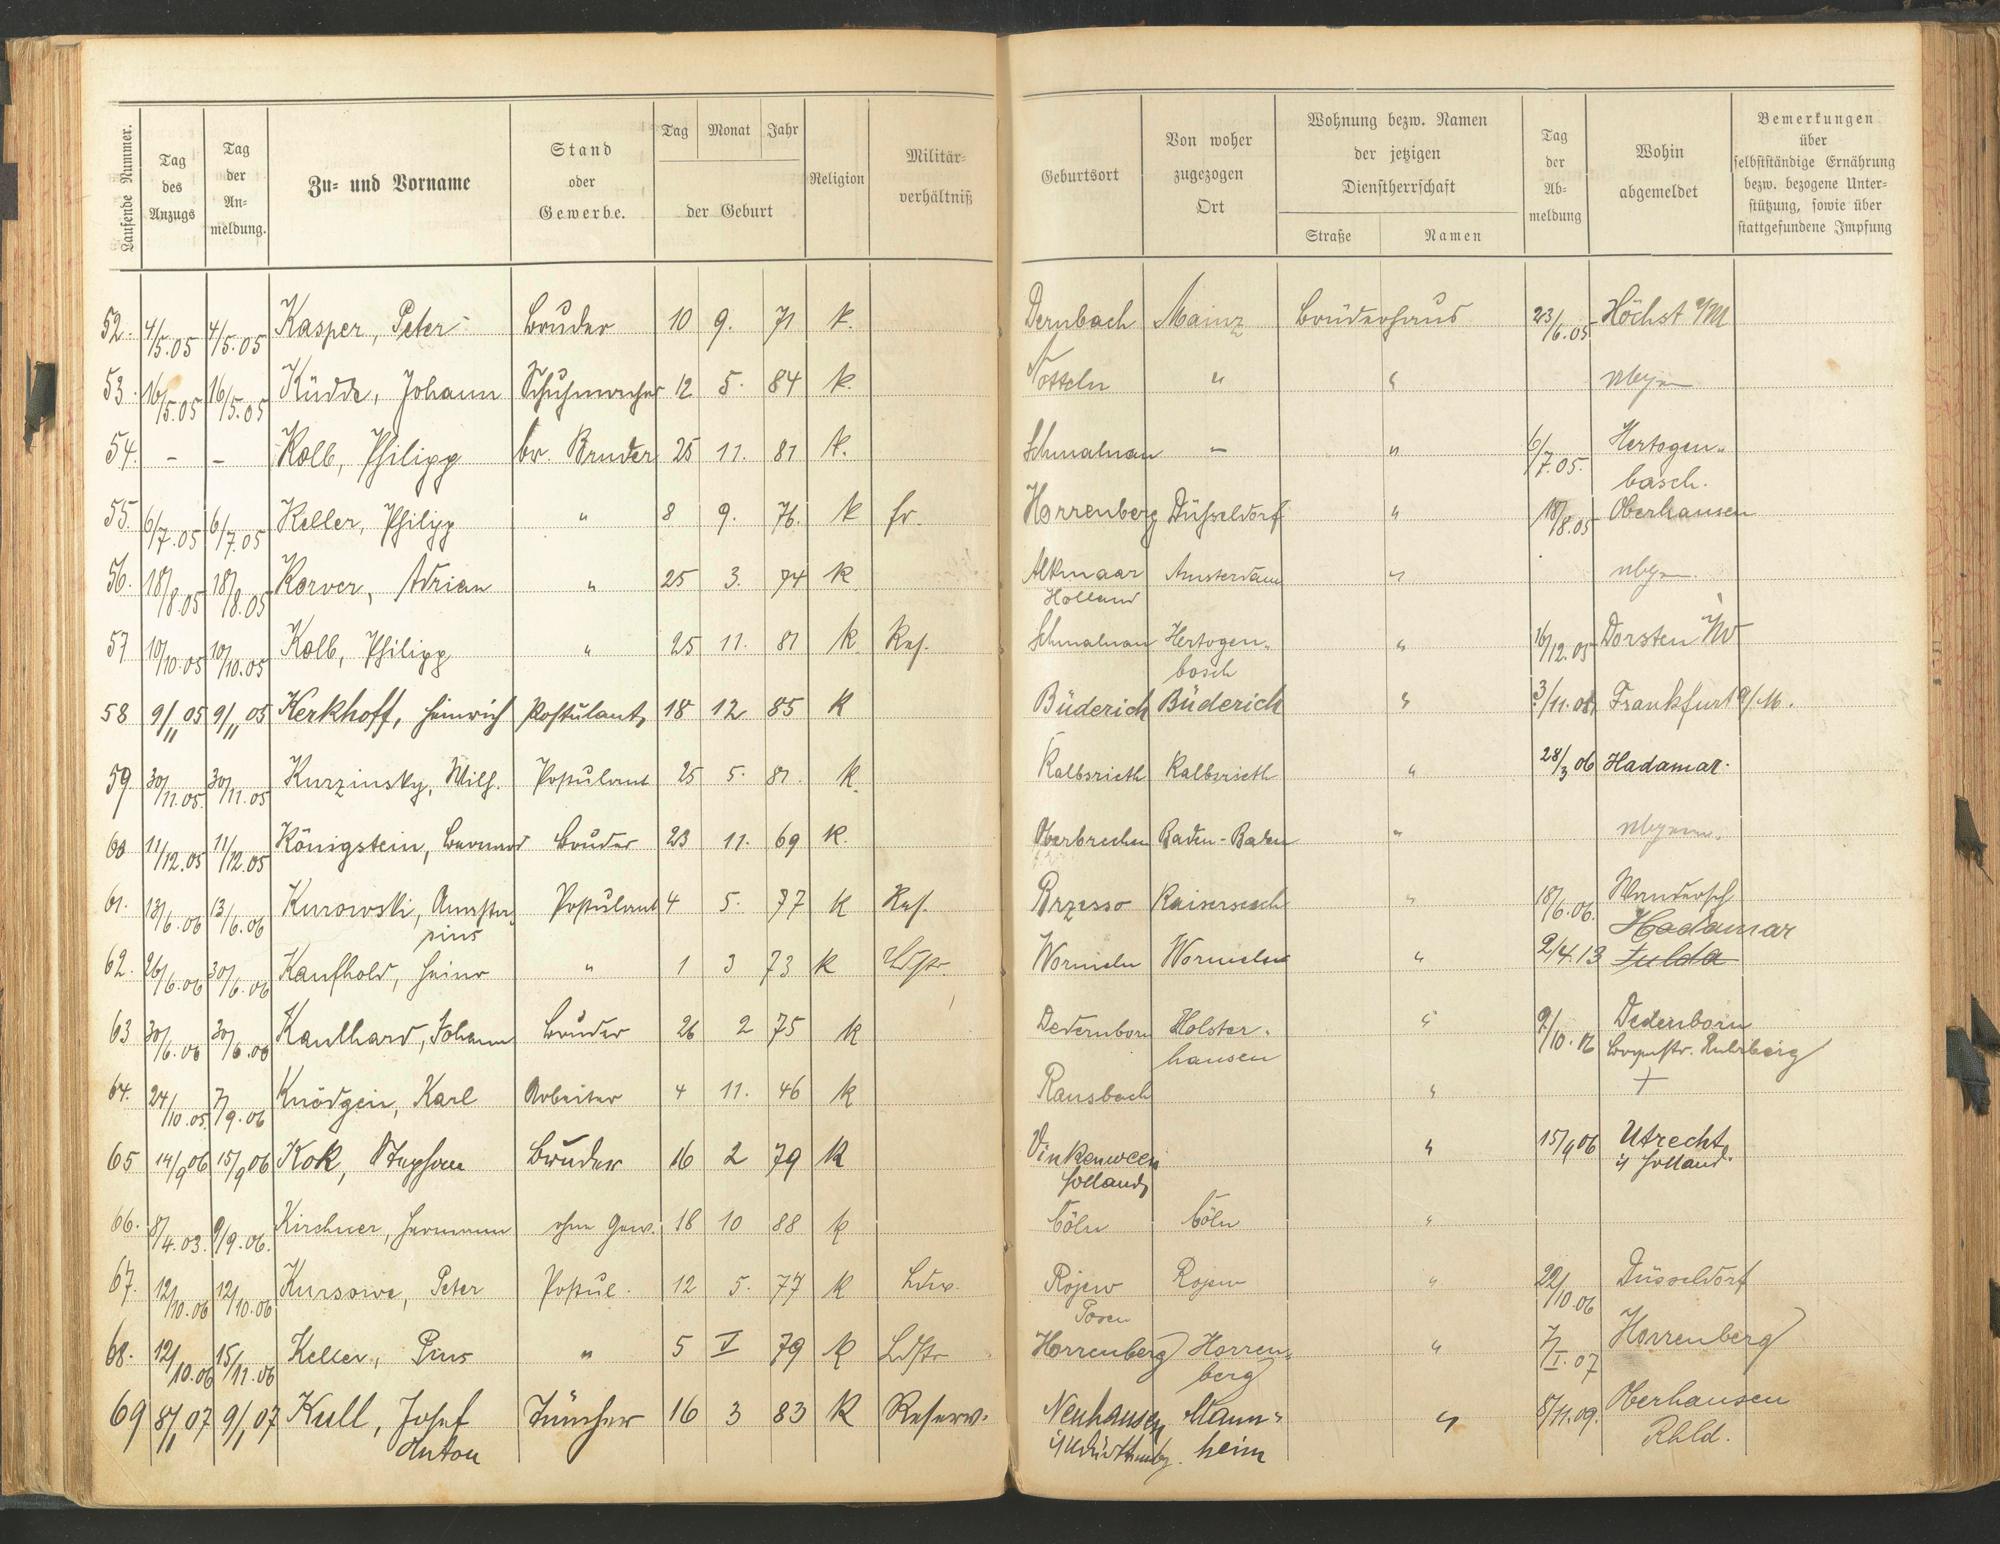 Laufende Nummer.
Tag des Anzugs
Tag der An-meldung.
Zu- und Vorname
Stand oder Gewerbe.
Tag Monat Jahr
der Geburt
Religion
Militär-verhältniß
Geburtsort
Von woher zugezogen Ort
Wohnung bezw. Namen der jetzigen Dienstherrschaft
Straße Namen
Tag der Ab-meldung
Wohin abgemeldet
Bemerkungen über selbstständige Ernährung bezw. bezogene Unter-stützung, sowie über stattgefundene Impfung
52. 4/5.05 4/5.05 Kasper, Peter Bruder 10 9. 71 k. Dernbach Mainz Brüderhaus 23/6.05 Höchst a/M
53. 16/5.05 16/5.05 Küdde, Johann Schuhmacher 12 5. 84 k. Notteln " "
54. - - Kolb, Philipp br. Bruder 25 11. 81 k. Schmalnau - " 6/7.05. Hertogen-
basch.
55. 6/7.05 6/7.05 Keller, Philipp " 8 9. 76. k Horrenberg Düsseldorf " 18/8.05 Oberhausen
56. 18/8.05 18/8.05 Korver, Adrian " 25 3. 74 k Alkmaar Amsterdam "
Holland
57 10/10.05 10/10.05 Kolb, Philipp " 25 11. 81 k. Res. Schmalnau Hertogen- " 16/12.05 Dorsten i/W
bosch
58 9/11 05 9/11 05 Kerkhoff, Heinrich Postulant 18 12 85 k Büderich Büderich " Frankfurt a/M.
59 30/11.05. 30/11.05 Kurzinsky, Wilh. Postulant 25 5. 81. k. Kalbsrieth Kalbsrieth " 28/3 06 Hadamar.
60 11/12.05 11/12.05 Königstein, Bernard Bruder 23 11. 69 k. Oberbrechen Baden-Baden "
61. 13/6.06 13/6.06 Kurowski, Postulant 4 5. 77 k Res. Brzesso Kaisersesch " 18/6.06. Wandersch
Hadamar
62. 26/6.06 30/6.06 Kaufhold, Heinr " 1 3 73 k Ldstr. Wormeln Wormeln " 2/4.13 Fulda
63 30/6.06 30/6.06 Kaulhard, Johann Bruder 26 2 75 k Dedernborn Holster- " Dedenborn
hausen Ruhrberg
64. 24/10.05. 7/9.06 Knödgen, Karl Arbeiter 4 11. 46 k Ransbach " +
65 14/9 06 15/9 06 Kok, Stephan Bruder 16 2 79 k " 15/9 06 Utrecht
Holland i/ Holland.
66. 8/4.03. 9/9.06. Kirchner, Hermann ohne Gew. 18 10 88 k Cöln Cöln "
67. 12/10.06 12/10.06 Kursowe, Peter Postul. 12 5. 77 k Ldw. Rojew Rojew " 22/10.06 Düsseldorf
Posen
68. 12/10.06 15/11.06 Keller, Pius " 5 V 79 k Ldstr Horrenberg Horren- " 7/I.07 Horrenberg
berg
69 8/1 07 9/1 07 Kull, Josef Tüncher 16 3 83 k Reserv. Neuhausen Mann- " 8/11.09. Oberhausen
Anton i/Württemby. heim Rhld.